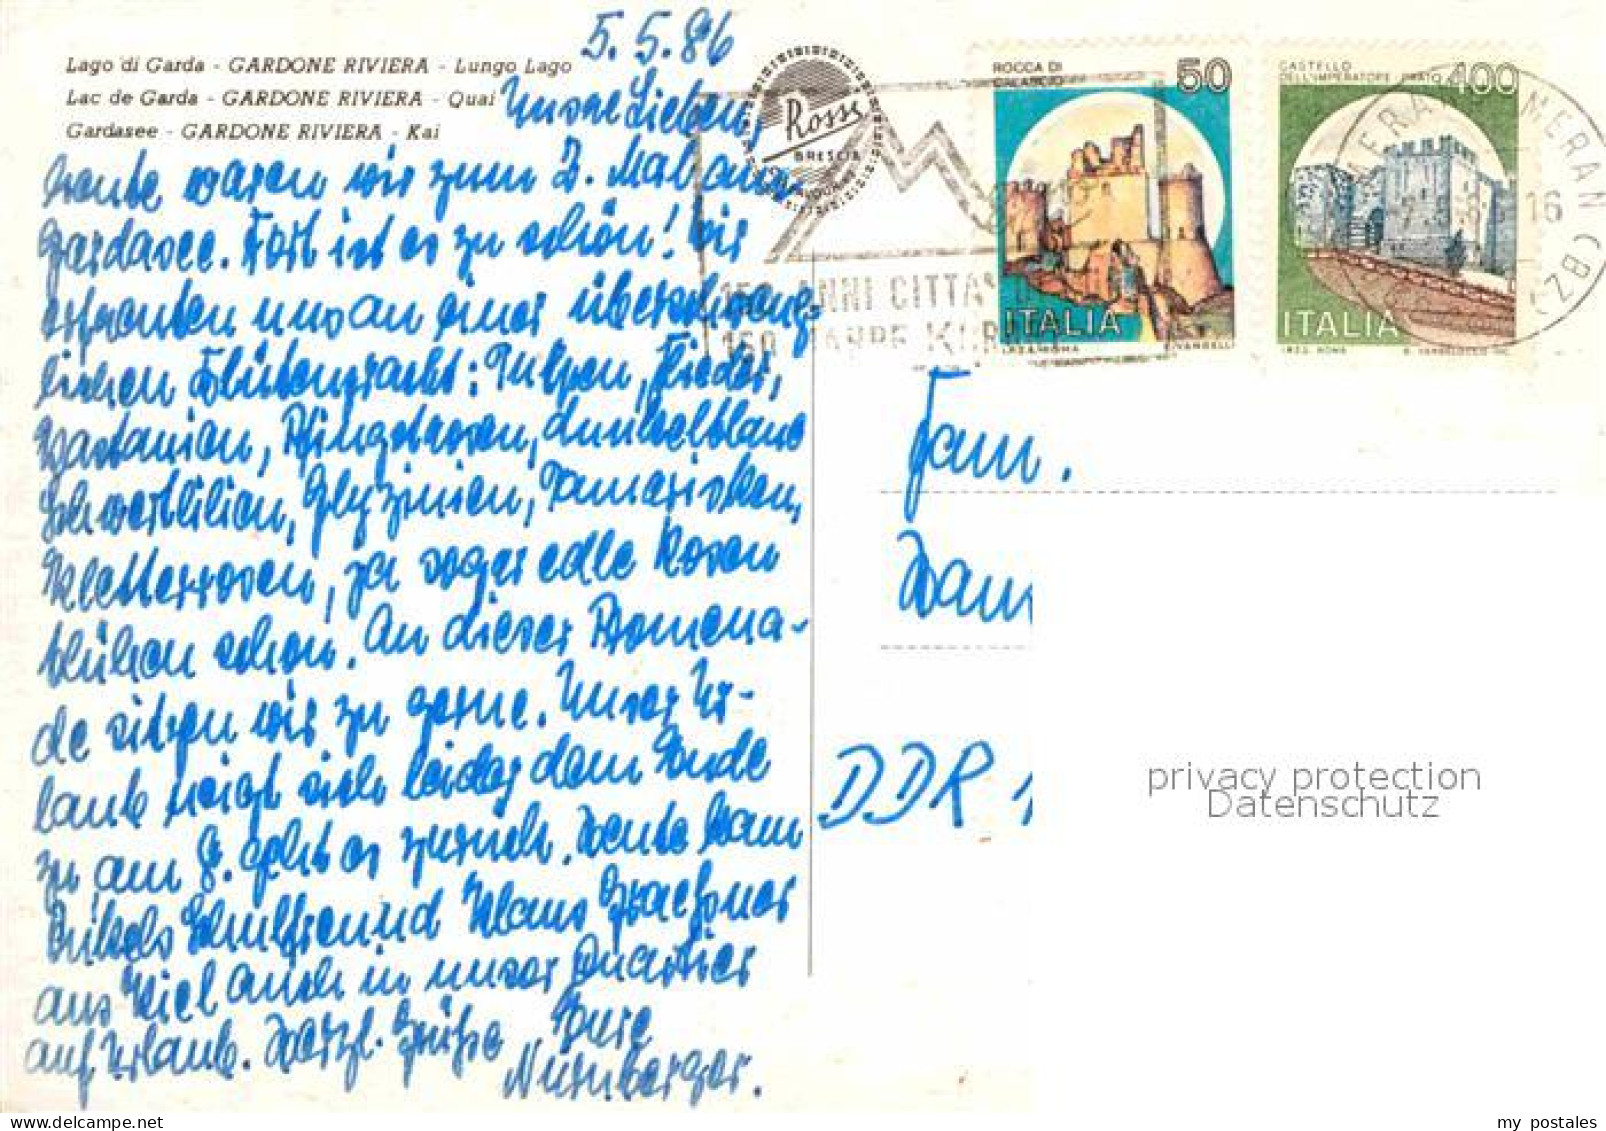 Lago di Garda - GARDONE RIVIERA - Lungo Lago
Lac de Garda - GARDONE RIVIERA - Quai
Gardasee - GARDONE RIVIERA - Kai
5.5.86
Unsere Lieben,
heute waren wir zum 2. Mal am
Gardasee. Fort ist es zu schön! Wir
erfreuten uns an einer überschweng-
lichen Blütenpracht: Tulpen, Flieder,
Kastanien, Pfingstrosen, dunkelblaue
Schwertlilien, Glyzinien, Tamarisken,
Kletterrosen, ja sogar edle Rosen
blühen schon. An dieser Promena-
de sitzen wir zu gerne. Unser Ur-
laub neigt sich leider dem Ende
zu, am 8. geht es zurück. Heute kam
Schulfreund Klaus
aus Kiel auch in unser Quartier
auf Urlaub. Herzl. Grüße Eure
Nürnberger.
Rossi
BRESCIA
ROCCA DI
CALASCIO
50
ITALIA
CASTELLO
DELL'IMPERATORE - PRATO
400
ITALIA
150 ANNI CITTA'
150 JAHRE KUR
MERAN (BZ)
16
Fam.
DDR 1
privacy protection
Datenschutz
my postales